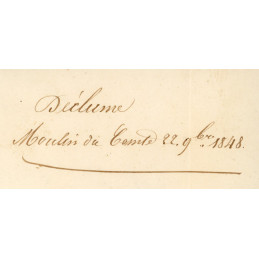 Déclume
Moulin du Comte 22. 9bre 1848.